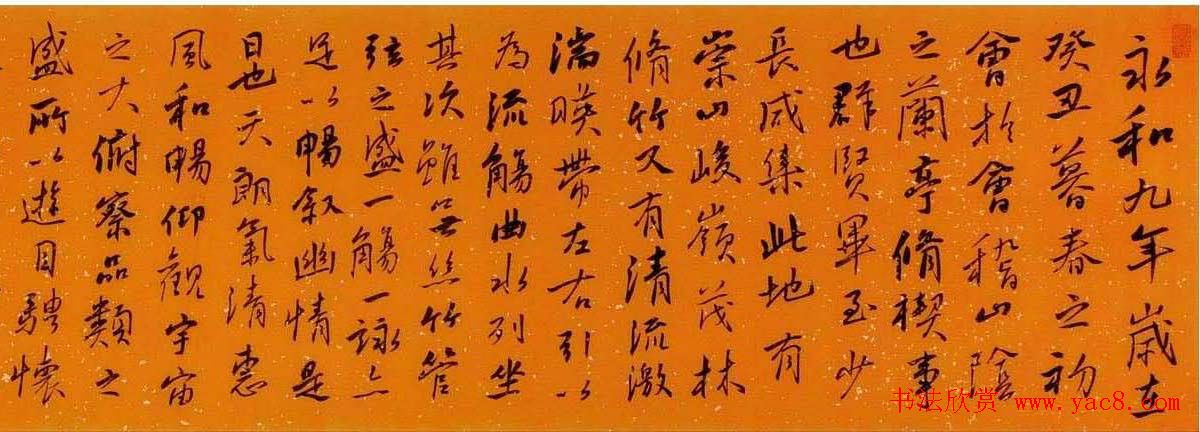 永和九年歲在
癸丑暮春之初
會於會稽山陰
之蘭亭脩禊事
也群賢畢至少
長咸集此地有
崇山峻嶺茂林
脩竹又有清流激
湍暎帶左右引以
為流觴曲水列坐
其次雖無絲竹管
弦之盛一觴一詠亦
足以暢敘幽情是
日也天朗氣清惠
風和暢仰觀宇宙
之大俯察品類之
盛所以遊目騁懷
书法欣赏 www.yac8.com